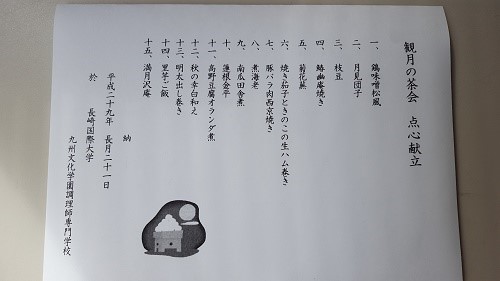 観月の茶会　点心献立
一、鶏味噌松風
二、月見団子
三、枝豆
四、鰆幽庵焼き
五、菊花蕪
六、焼き茄子ときのこの生ハム巻き
七、豚バラ肉西京焼き
八、煮海老
九、南瓜田舎煮
十、蓮根金平
十一、高野豆腐オランダ煮
十二、秋の幸白和え
十三、明太出し巻き
十四、里芋ご飯
十五、満月沢庵
納
平成二十九年　長月二十一日
於　長崎国際大学
九州文化学園調理師専門学校